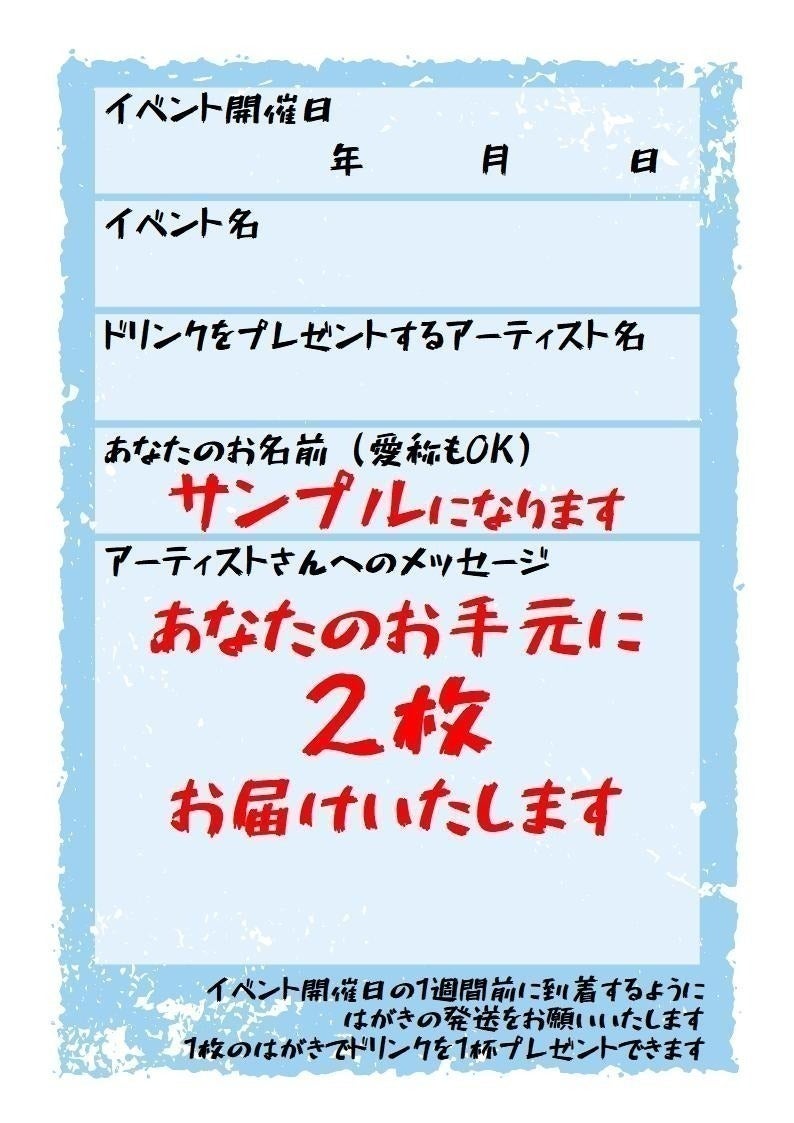 イベント開催日
年 月 日
イベント名
ドリンクをプレゼントするアーティスト名
あなたのお名前（愛称もOK）
サンプルになります
アーティストさんへのメッセージ
あなたのお手元に
2枚
お届けいたします
イベント開催日の1週間前に到着するように
はがきの発送をお願いいたします
1枚のはがきでドリンクを1杯プレゼントできます